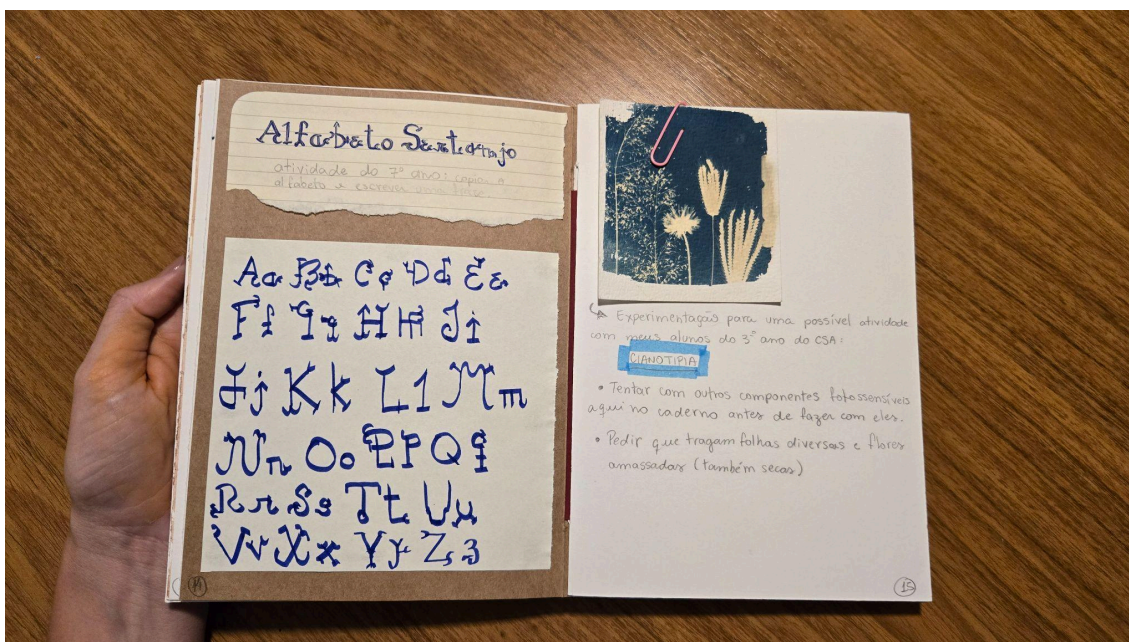 Alfabeto Sertanejo
atividade do 7º ano: copiar o
alfabeto e escrever uma frase
Aa Bb Cc Dd Ee
Ff Gg Hh Ii
Jj Kk Ll Mm
Nn Oo Pp Qq
Rr Ss Tt Uu
Vv Xx Yy Zz
14
Experimentação para uma possível atividade
com meus alunos do 3º ano do CSA:
CIANOTIPIA
• Tentar com outros componentes fotossensíveis
aqui no caderno antes de fazer com eles.
• Pedir que tragam folhas diversas e flores
amassadas (também secas)
15